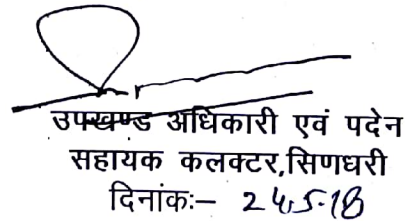 उपखण्ड अधिकारी एवं पदेन
सहायक कलक्टर,सिणधरी
दिनांकः– 24.5.18